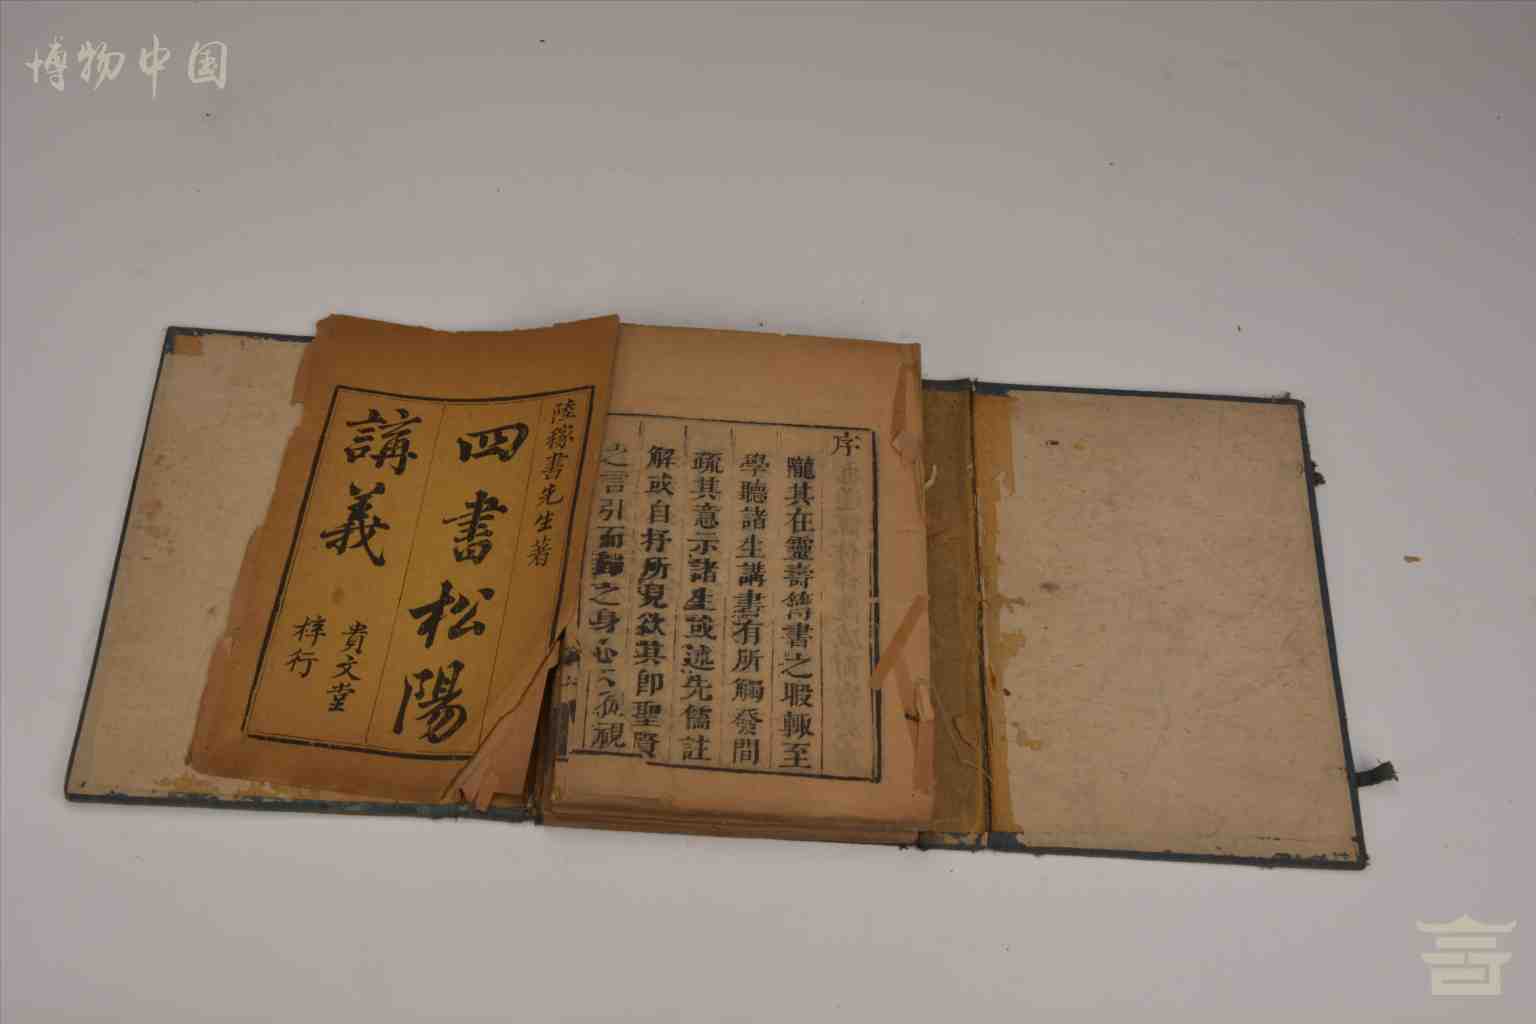 博物中国
陸稼書先生著
四書松陽
講義
貴文堂
梓行
序
隴其在靈壽簿書之暇輒至
學聽諸生講書有所觸發間
疏其意示諸生或述先儒註
解或自抒所見欲其即聖賢
之言引而歸之身心不徒視